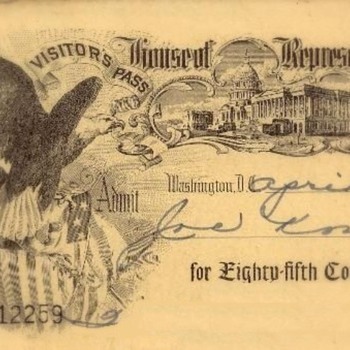 VISITOR'S PASS
House of Represe
Washington, D.C. April
Admit Joe
for Eighty-fifth Co
12259